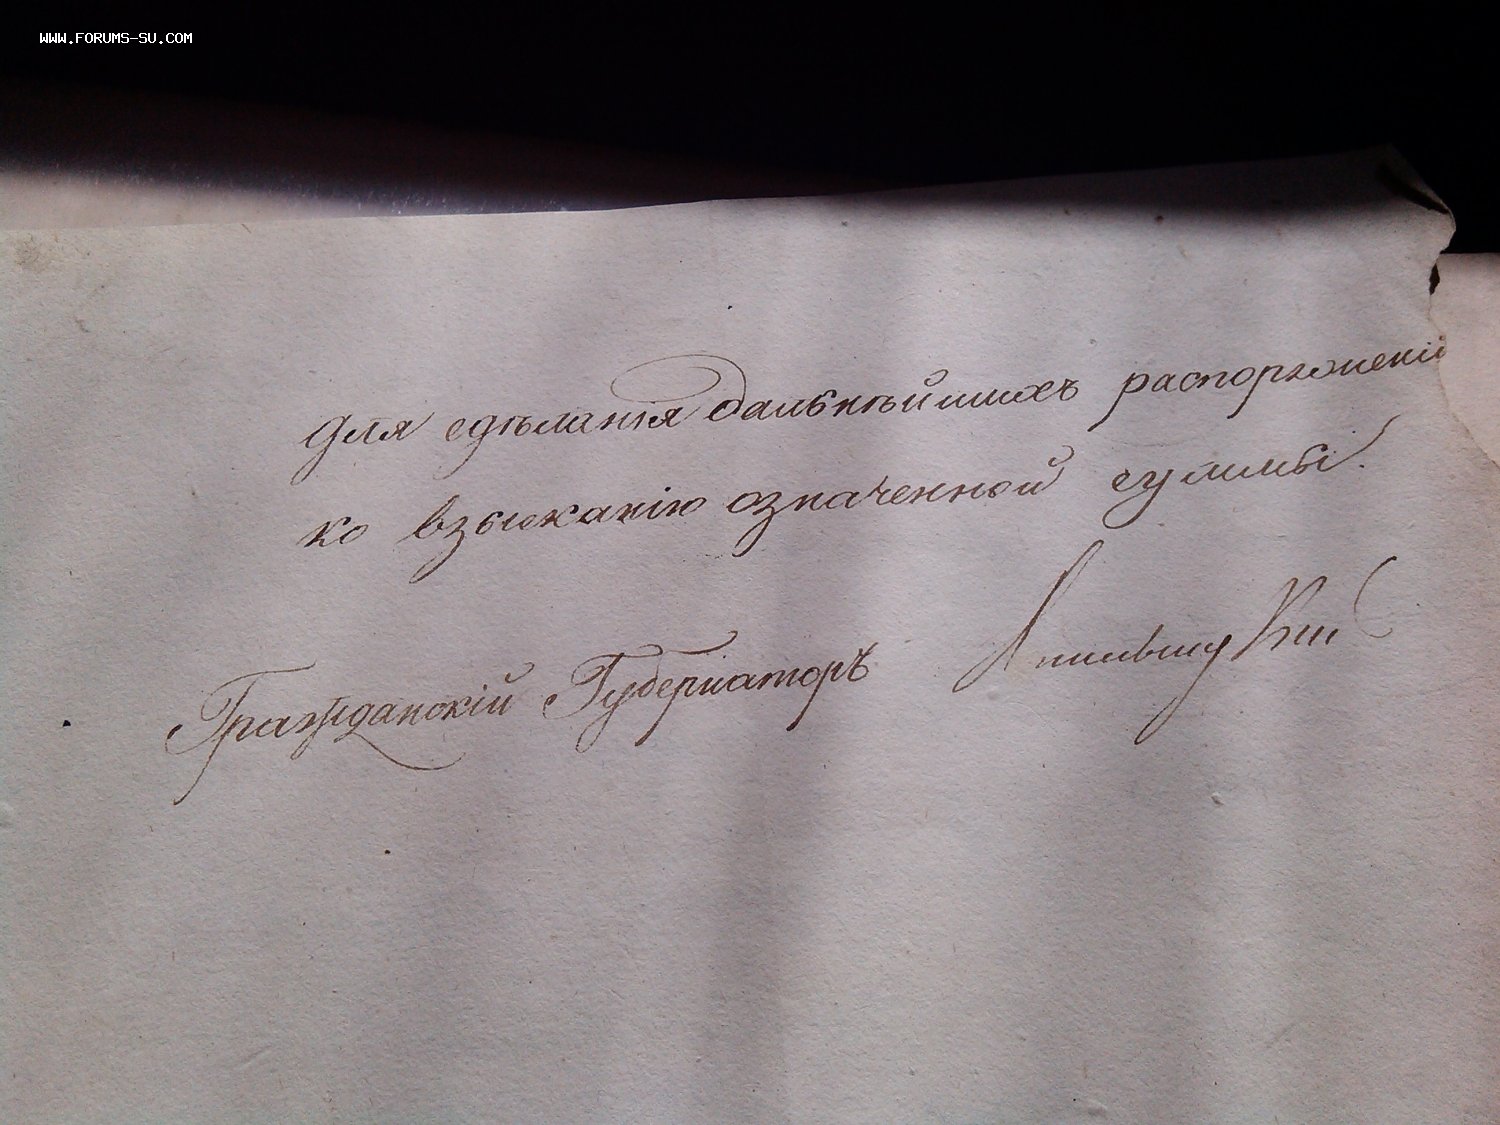 WWW.FORUMS-SU.COM
для сдѣланія дальнѣйшихъ распоряженій
ко взысканію означенной суммы.
Гражданскій Губернаторъ